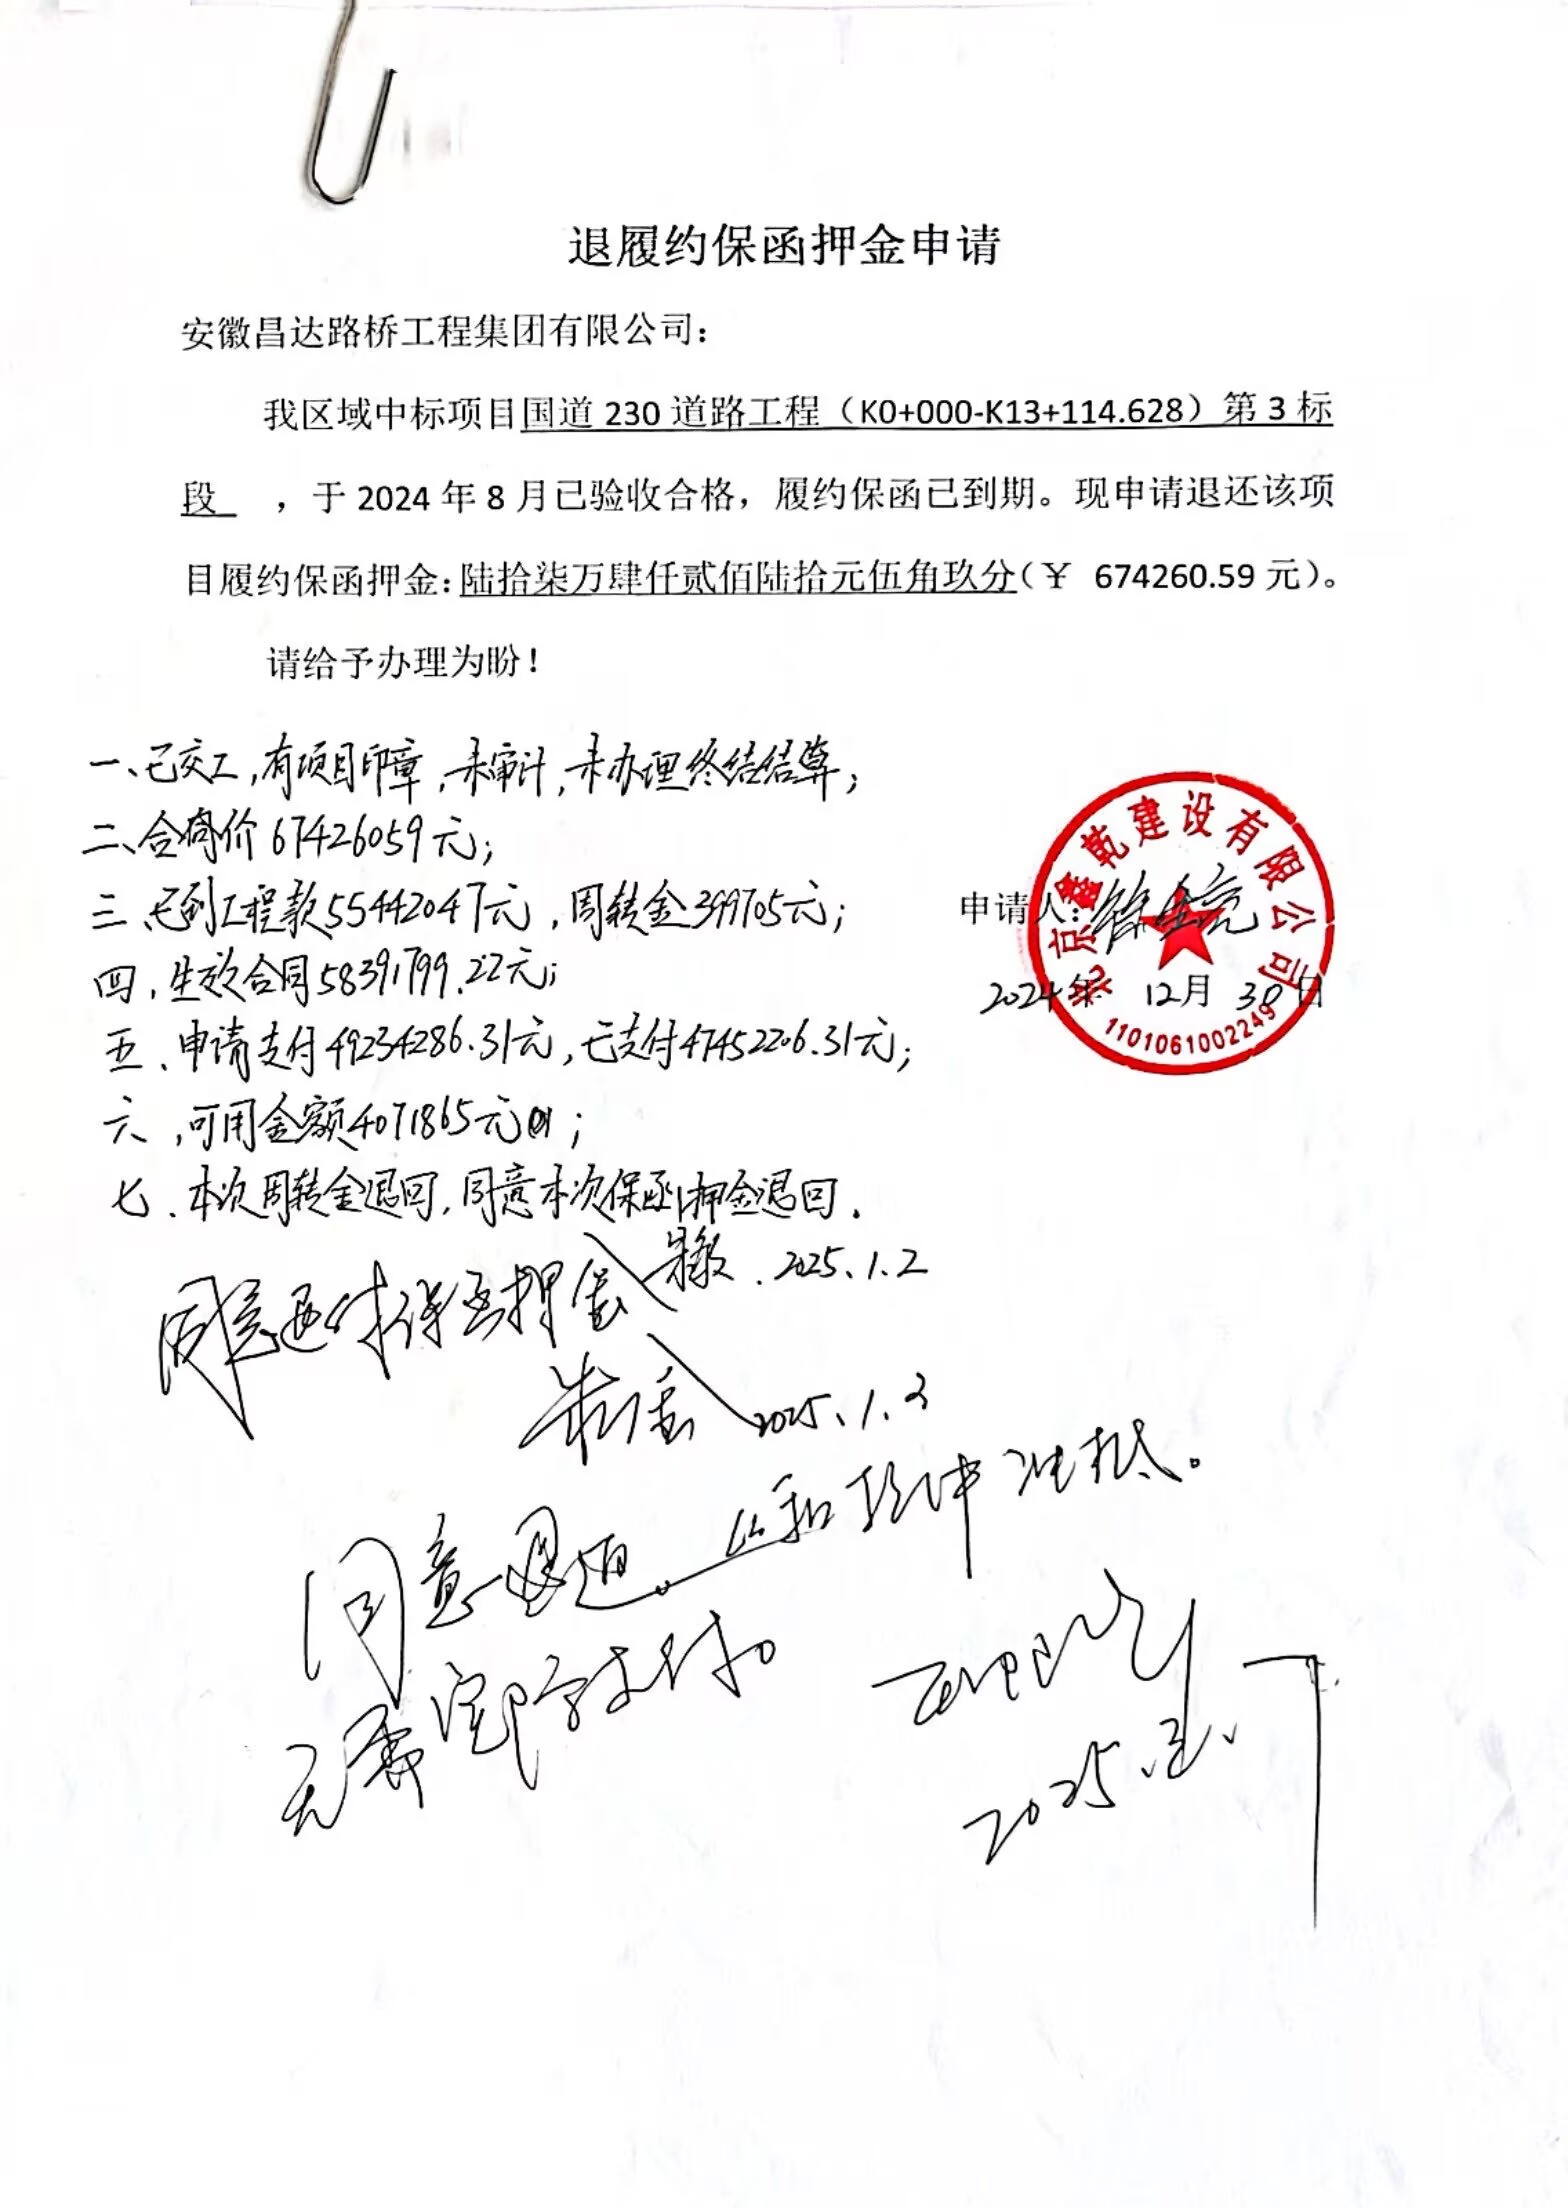 退履约保函押金申请
安徽昌达路桥工程集团有限公司：
我区域中标项目国道 230 道路工程（K0+000-K13+114.628）第 3 标
段_ ，于 2024 年 8 月已验收合格，履约保函已到期。现申请退还该项
目履约保函押金：陆拾柒万肆仟贰佰陆拾元伍角玖分（￥ 674260.59 元）。
请给予办理为盼！
一、已交工，有项目印章，未审计，未办理终结结算；
二、合同价67426059元；
三、已到工程款55442047元，周转金399705元；
四、生效合同58391799.22元；
五、申请支付49234286.31元，已支付47452206.31元；
六，可用金额4071865元；
七、本次周转金退回，同意本次保函押金退回.
申请人：
2024年 12月 30日
北京鑫乾建设有限公司
1101061002249
2025.1.2
同意退付保函押金
2025.1.3
同意
2025.